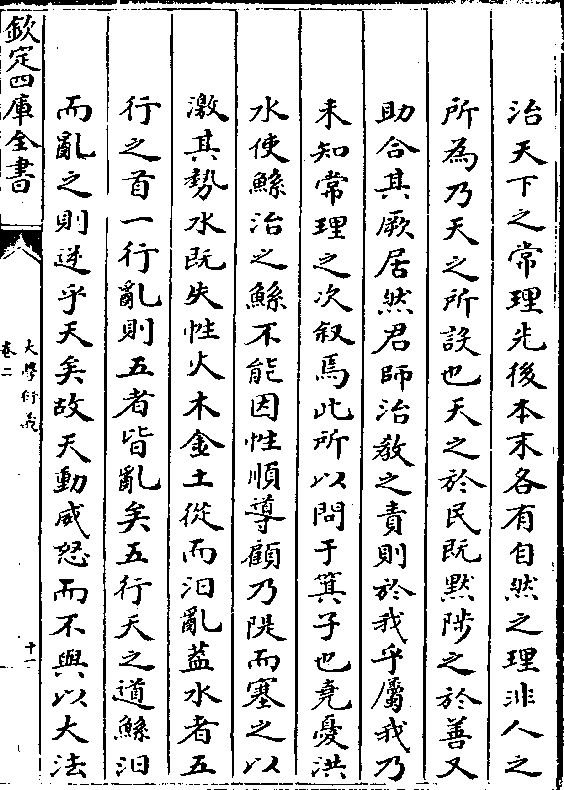 治天下之常理先後本末各有自然之理非人之
所為乃天之所設也天之於民既黙陟之於善又
助合其厥居然君師治教之責則於我乎屬我乃
未知常理之次叙焉此所以問于箕子也堯憂洪
水使鯀治之鯀不能因性順導顧乃隄而塞之以
激其勢水既失性火木金土從而汨亂葢水者五
行之首一行亂則五者皆亂矣五行天之道鯀汨
而亂之則逆乎天矣故天動威怒而不與以大法
欽定四庫全書
大學衍義
卷二
十一